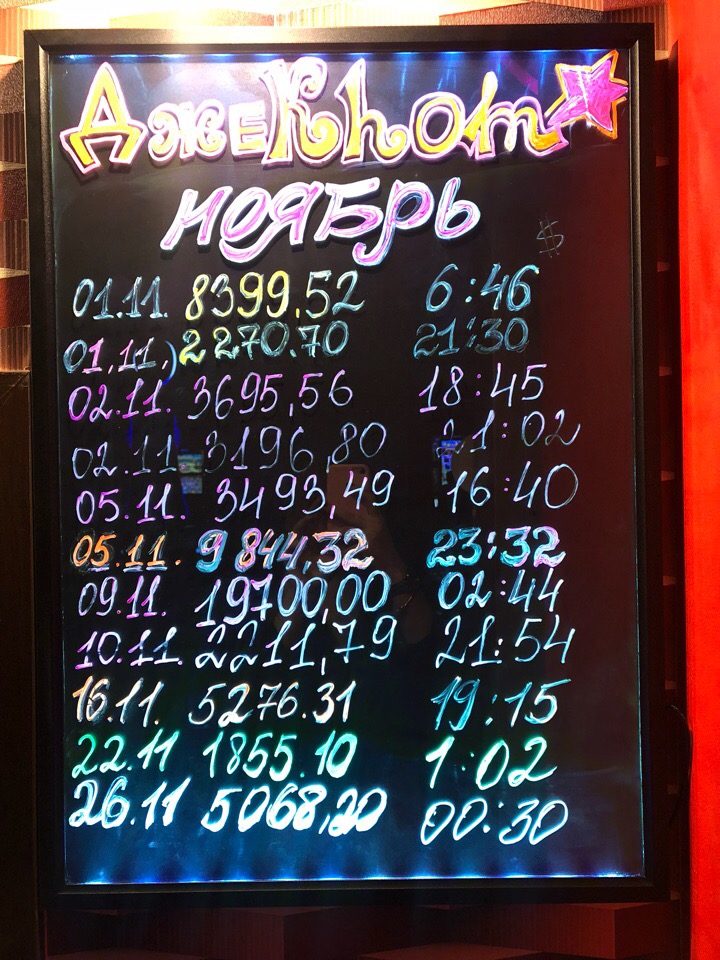 Джекпот
ноябрь
$
01.11. 8399,52 6:46
01.11.) 2270.70 21:30
02.11. 3695,56 18:45
02.11 3196,80 21:02
05.11. 3493,49 16:40
05.11. 9844,32 23:32
09.11. 19700,00 02:44
10.11. 2211,79 21:54
16.11. 5276.31 19:15
22.11 1855.10 1:02
26.11 5068,20 00:30